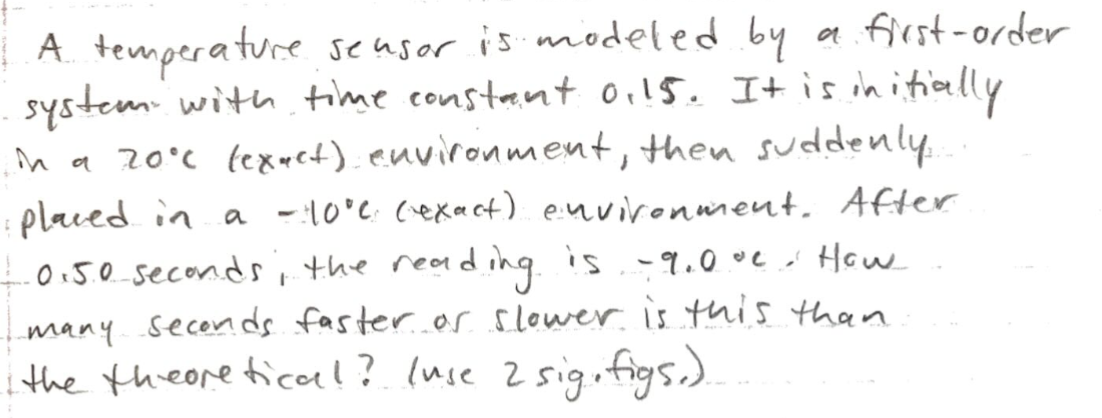 A temperature sensor is modeled by a first-order
system with time constant 0.15. It is initially
in a 20°C (exact) environment, then suddenly
placed in a -10°C (exact) environment. After
0.50 seconds, the reading is -9.0 °C. How
many seconds faster or slower is this than
the theoretical? (use 2 sig.figs.)